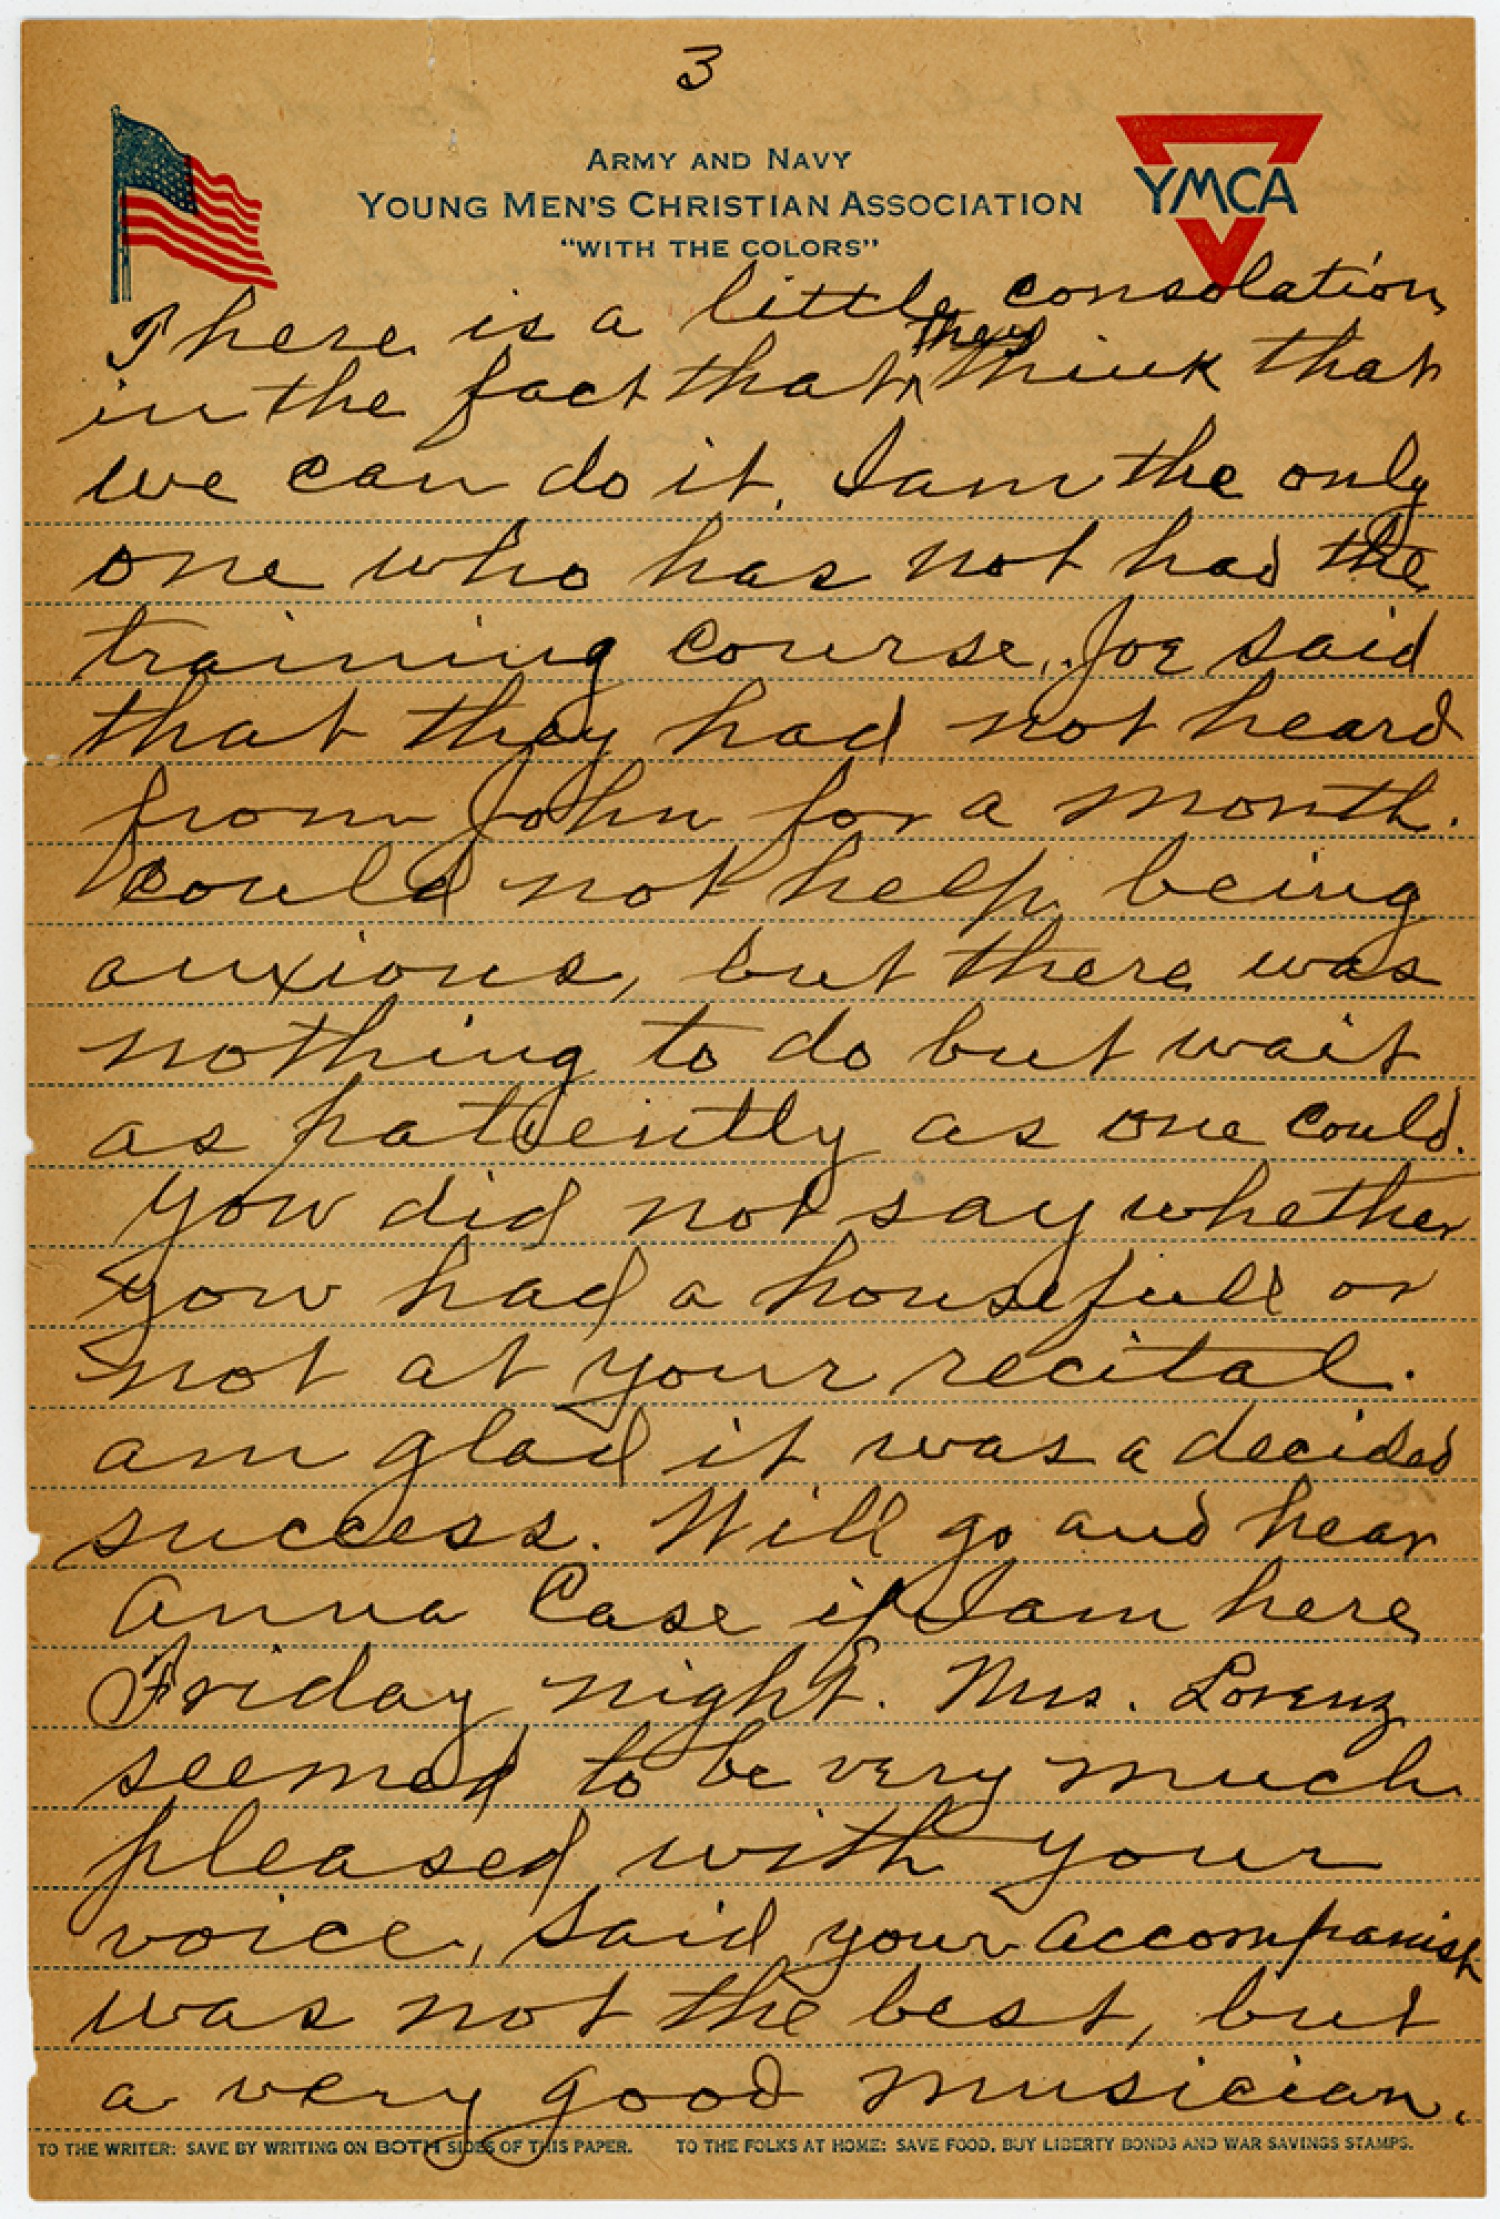 3
ARMY AND NAVY
YOUNG MEN'S CHRISTIAN ASSOCIATION
"WITH THE COLORS"
YMCA
There is a little consolation
in the fact that they think that
we can do it. I am the only
one who has not had the
training course. Joe said
that they had not heard
from John for a month.
Could not help being
anxious, but there was
nothing to do but wait
as patiently as one could.
You did not say whether
you had a housefull or
not at your recital.
am glad it was a decided
success. Will go and hear
Anna Case if I am here
Friday night. Mrs. Lorenz
seemed to be very much
pleased with your
voice, said your accompanist
was not the best, but
a very good musician.
TO THE WRITER: SAVE BY WRITING ON BOTH SIDES OF THIS PAPER. TO THE FOLKS AT HOME: SAVE FOOD, BUY LIBERTY BONDS AND WAR SAVINGS STAMPS.